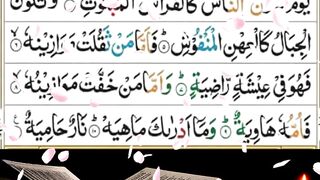 النَّاسُ كَالْفَرَاشِ الْمَبْثُوْثِ ۙ وَتَكُوْنُ
الْجِبَالُ كَالْعِهْنِ الْمَنْفُوْشِ ؕ فَاَمَّا مَنْ ثَقُلَتْ مَوَازِيْنُهٗ ۙ
فَهُوَ فِيْ عِيْشَةٍ رَّاضِيَةٍ ؕ وَاَمَّا مَنْ خَفَّتْ مَوَازِيْنُهٗ ۙ
فَاُمُّهٗ هَاوِيَةٌ ؕ وَمَاۤ اَدْرٰىكَ مَا هِيَهْ ؕ نَارٌ حَامِيَةٌ